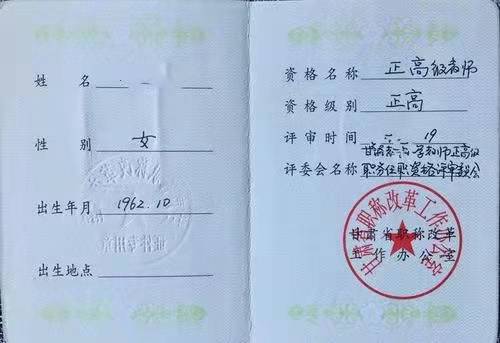 姓 名
性 别 女
出生年月 1962.10
出生地点
证件专用章
资格名称 正高级教师
资格级别 正高
评审时间 19
评委会名称 职务任职资格评审委员会
甘肃省职称改革
工作办公室
甘肃省职称改革工作办公室